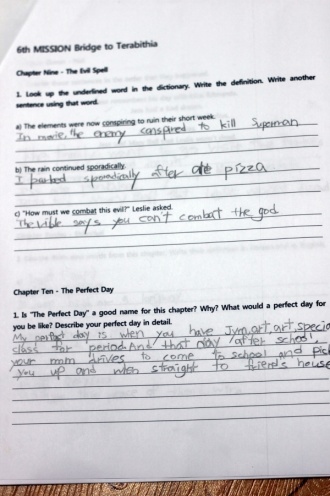 6th MISSION Bridge to Terabithia
Chapter Nine - The Evil Spell
1. Look up the underlined word in the dictionary. Write the definition. Write another
sentence using that word.
a) The elements were now conspiring to ruin their short week.
In movie, the enemy conspired to kill Superman
b) The rain continued sporadically.
I sporadically after ate pizza
c) "How must we combat this evil?" Leslie asked.
The bible says you can't combat the god.
Chapter Ten - The Perfect Day
1. Is "The Perfect Day" a good name for this chapter? Why? What would a perfect day for
you be like? Describe your perfect day in detail.
My perfect day is when you have Jym, art, art, special
class for period. And that day after school,
your mom drives to come to school and pick
you up and when straight to friend's house